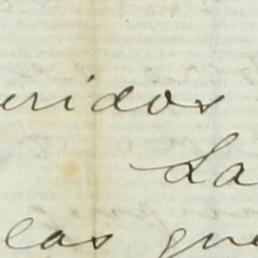 eridos
La
las que